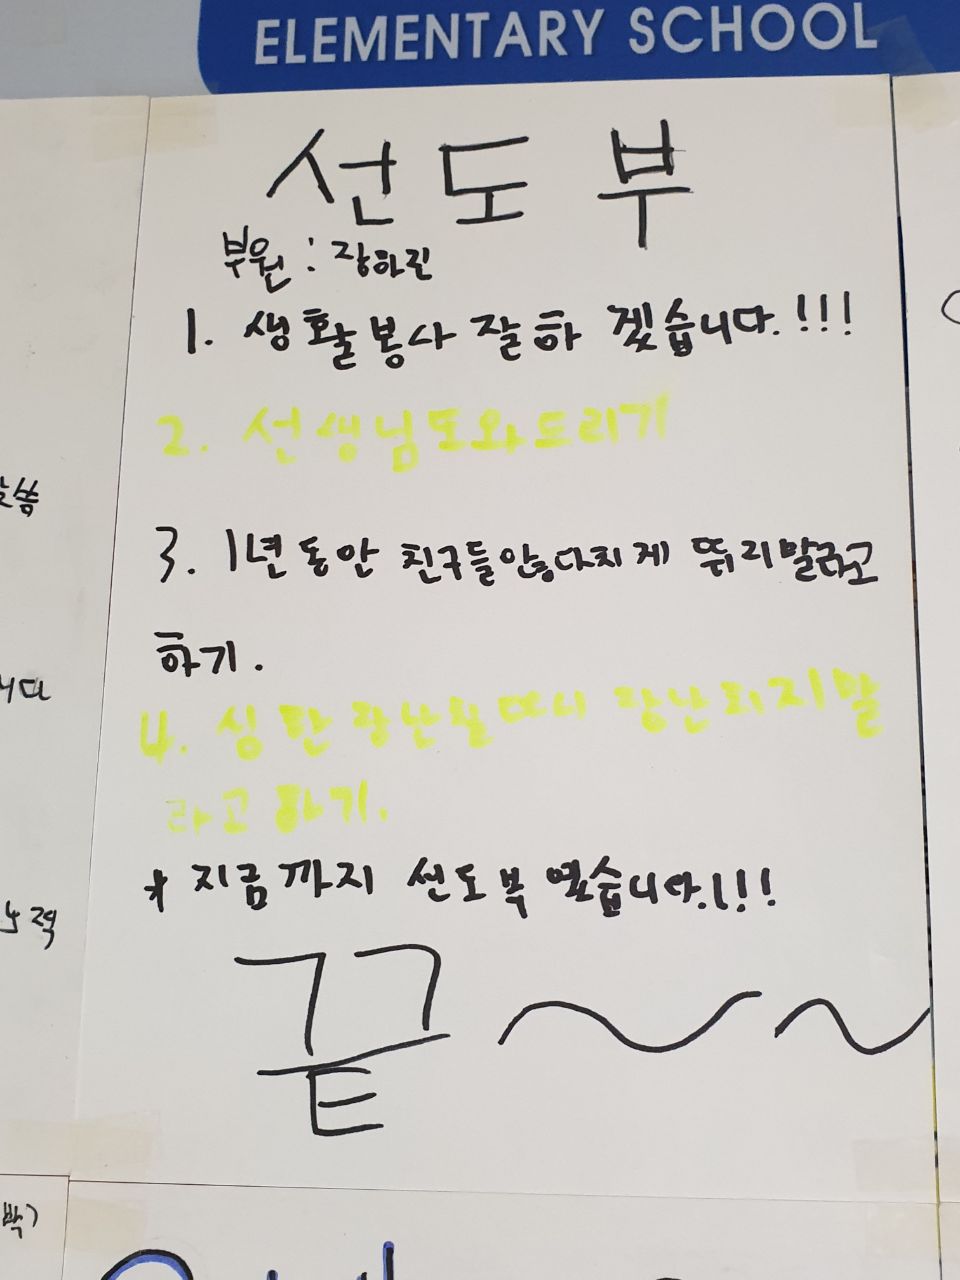 ELEMENTARY SCHOOL
선도부
부원 : 장하진
1. 생활봉사 잘하 겠습니다.!!!
2. 선생님도와드리기
3. 1년동안 친구들안다치게 뛰리말라고
하기.
4. 심한 장난칠때시 장난치지말
라고 하기.
* 지금까지 선도부 였습니다.!!!
끝~~